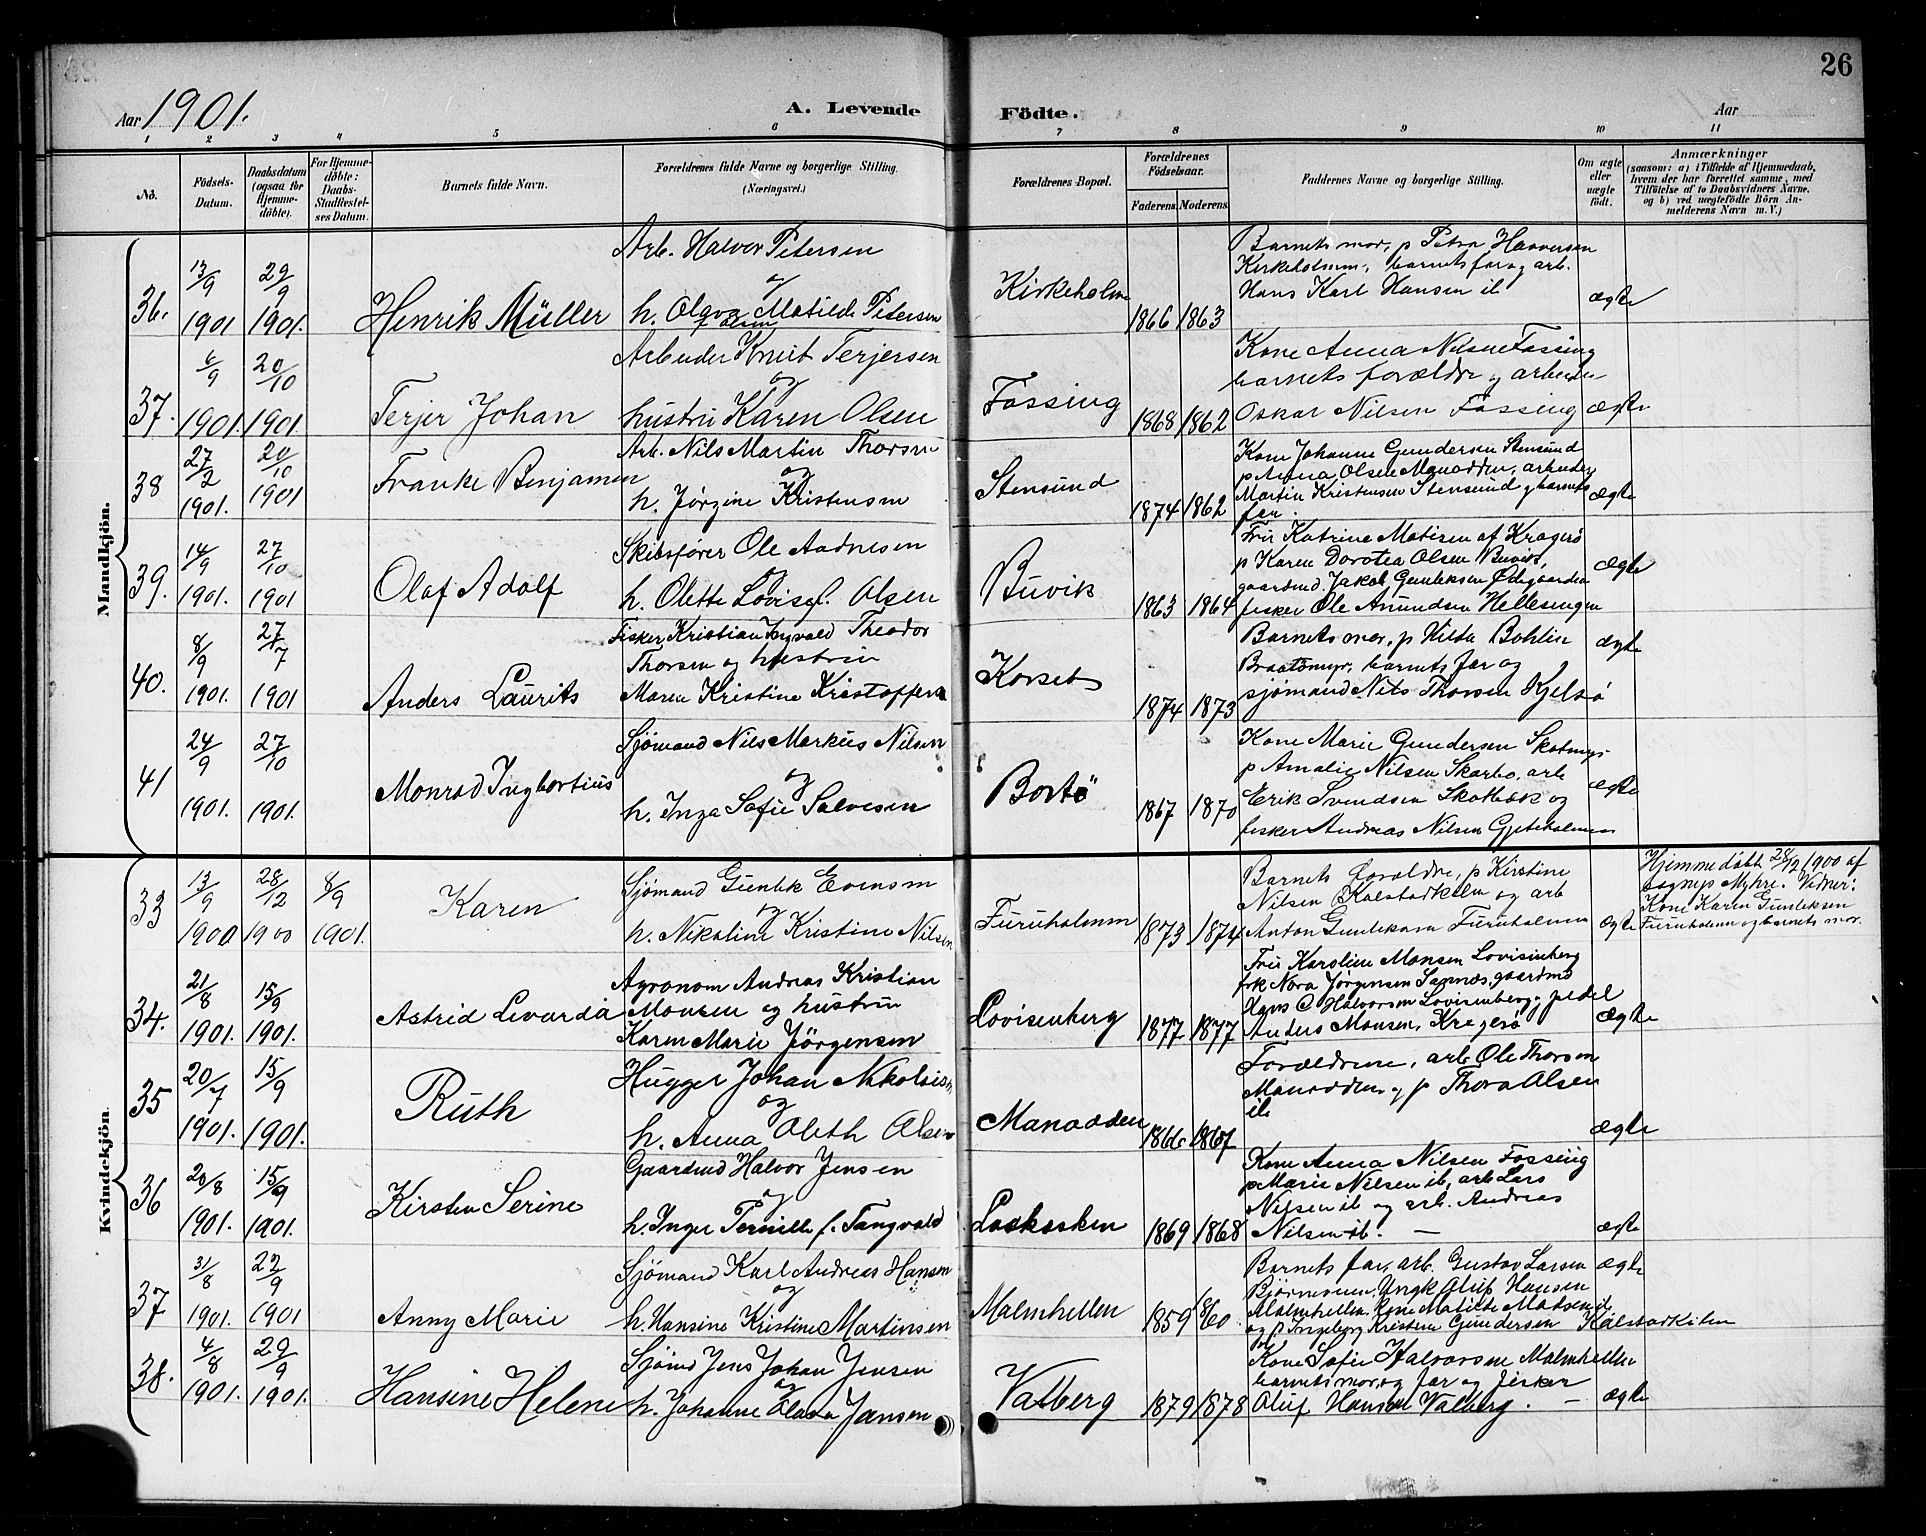 26
Aar 1901.
A. Levende Födte.
Aar
1 2 3 4 5 6 7 8 9 10 11
No.
Födsels-Datum.
Daabsdatum (ogsaa for Hjemmedöbte).
For Hjemmedöbte: Daabs-Stadfæstelses Datum.
Barnets fulde Navn.
Forældrenes fulde Navne og borgerlige Stilling. (Næringsvei.)
Forældrenes Bopæl.
Forældrenes Födselsaar.
Faderens. Moderens.
Faddernes Navne og borgerlige Stilling.
Om ægte eller uægte født.
Anmærkninger
(saasom: a) i Tilfælde af Hjemmedaab, hvem der har forrettet samme, med Tilföielse af to Daabsvidners Navne, og b) ved uægtefödte Börn Anmelderens Navn m. V.)
Mandkjön.
36. 13/9 1901 29/9 1901. Henrik Müller
Arb. Halvor Petersen
og
h. Olava Matilde Petersen
f. Olsen
Kirkeholm 1866 1863
Barnets mor, p Petra Halvorsen
Kirkeholmen, barnets far og arb.
Hans Karl Hansen ib
ægte
37. 6/9 1901. 20/10 1901. Terjer Johan
Arbeider Knut Terjersen
og
hustru Karen Olsen
Fossing 1868 1862
Kone Anna Nilsen Fossing
barnets forældre og arbeider
Oskar Nilsen Fossing
ægte
38 27/2 1901. 20/10 1901 Franke Benjamen
Arb. Nils Martin Thorsen
og
h. Jørgine Kristensen
Stensund 1874 1862
Kone Johanne Gundersen Stensund
p Anna Olsen Manodden, arbeider
Martin Kristensen Stensund og barnets
far.
ægte
39. 14/9 1901. 27/10 1901 Olaf Adolf
Skibsfører Ole Aadnesen
og
h. Olette Lovise f. Olsen
Buvik 1863 1864
Fru Katrine Matisen af Kragerø
p Karen Dorotea Olsen Buvik,
gaardmd. Jakob Gunleksen Ødegaarden
fisker Ole Amundsen Hellesengen
ægte
40. 8/9 1901. 27/7 1901 Anders Laurits
Fisker Kristian Ingvald Theodor
Thorsen og hustru
Maren Kristine Kristoffersen
Korset 1874 1873
Barnets mor, p Hilda Bohlin
Braatømyr, barnets far og
sjømand Nils Thorsen Kjelsø
ægte
41 24/9 1901. 27/10 1901. Monrad Ingbortius
Sjømand Nils Markus Nilsen
og
h. Inga Sofie Salvesen
Bortø 1867 1870
Kone Marie Gundersen Skotmyr
p Amalie Nilsen Skarbo, arb
Erik Svendsen Skotbæk og
fisker Andreas Nilsen Gjeteholmen
ægte
Kvindekjön.
33 13/9 1900 28/12 1900 8/9 1901. Karen
Sjömand Gunlek Evensen
og
h. Nikoline Kristine Nilsen
Furuholmen 1873 1874
Barnets forældre, p Kirstine
Nilsen Kalstadkilen og arb
Anton Gunleksen Furuholmen
ægte
Hjemmedøbt 28/12 1900 af
sognep Myhre. Vidner:
Kone Karen Gunleksen
Furuholmen og barnets mor.
34. 21/8 1901. 15/9 1901. Astrid Levarda
Agronom Andreas Kristian
Monsen og hustru
Karen Marie Jörgensen
Lovisenberg 1877 1877
Fru Karoline Monsen Lovisenberg
frk Nora Jørgensen Sannes, gaardmd
Hans C Halvorsen Lovisenberg og pedel
Anders Monsen, Kragerø
ægte
35 20/7 1901. 15/9 1901. Ruth
Hugger Johan Nikolaisen
og
h. Anna Oleth Olsen
Manodden 1866 1867
Forældrene, arb Ole Thorsen
Manodden og p Thora Olsen
ib
ægte
36 20/8 1901. 15/9 1901. Kirsten Serine
Gaardmd Halvor Jensen
og
h. Inger Pernille f. Tangvald
1869 1868
Kone Anna Nilsen Fossing
p Marie Nilsen ib, arb Lars
Nilsen ib og arb. Andreas
Nilsen ib. —
ægte
37 31/8 1901. 22/9 1901 Anny Marie
Sjömand Karl Andreas Hansen
og
h. Hansine Kristine Martinsen
Malmhellen 1859 1860
Barnets far, arb. Gustav Larsen
Bjørneveien. Ungk Oluf Hansen
Malmhellen. Kone Matilde Madsen ib
og p Ingeborg Kristine Gundersen Kalstadkilen
ægte
38. 4/8 1901. 29/9 1901. Hansine Helene
Sjömd Jens Johan Jensen
og
h. Johanne Olava Jansen
Valberg 1879 1878
Kone Sofie Halvorsen Malmhellen
barnets mor, og far og fisker
Oluf Hansen Valberg. —
ægte